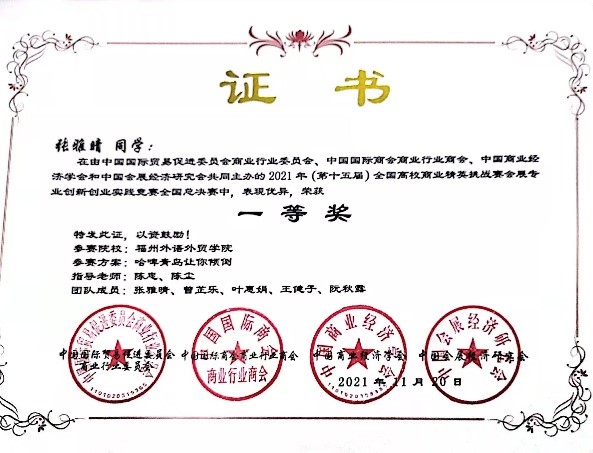 证 书
张雅晴 同学：
在由中国国际贸易促进委员会商业行业委员会、中国国际商会商业行业商会、中国商业经
济学会和中国会展经济研究会共同主办的 2021 年（第十五届）全国高校商业精英挑战赛会展专
业创新创业实践竞赛全国总决赛中，表现优异，荣获
一 等 奖
特发此证，以资鼓励！
参赛院校：福州外语外贸学院
参赛方案：哈啤青岛让你倾倒
指导老师：陈忠、陈尘
团队成员：张雅晴、曾芷乐、叶惠娟、王健子、阮秋露
中国国际贸易促进委员会 中国国际商会商业行业商会 中国商业经济学会 中国会展经济研究会
商业行业委员会
商业行业商会
2021 年 11 月 20 日